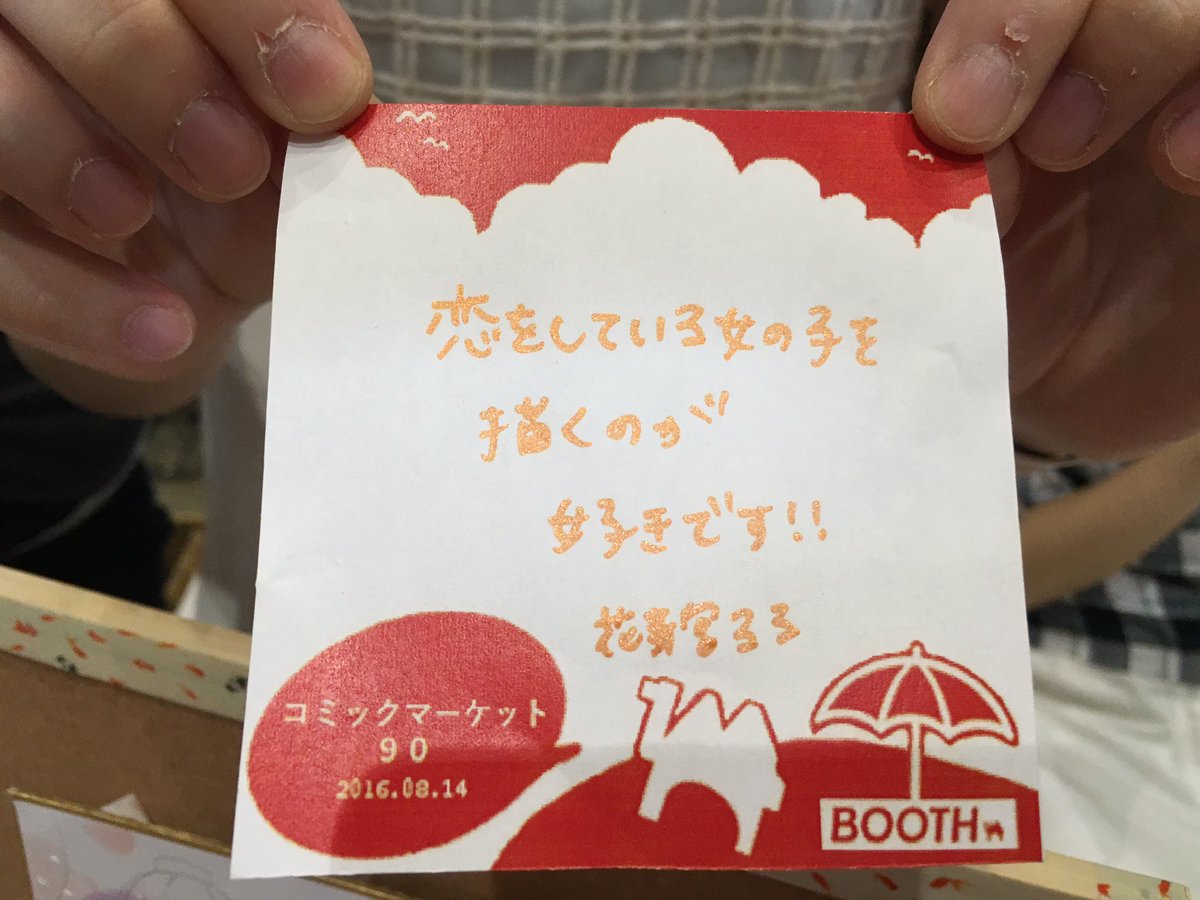 恋をしている女の子を
描くのが
好きです!!
コミックマーケット
90
2016.08.14
BOOTH